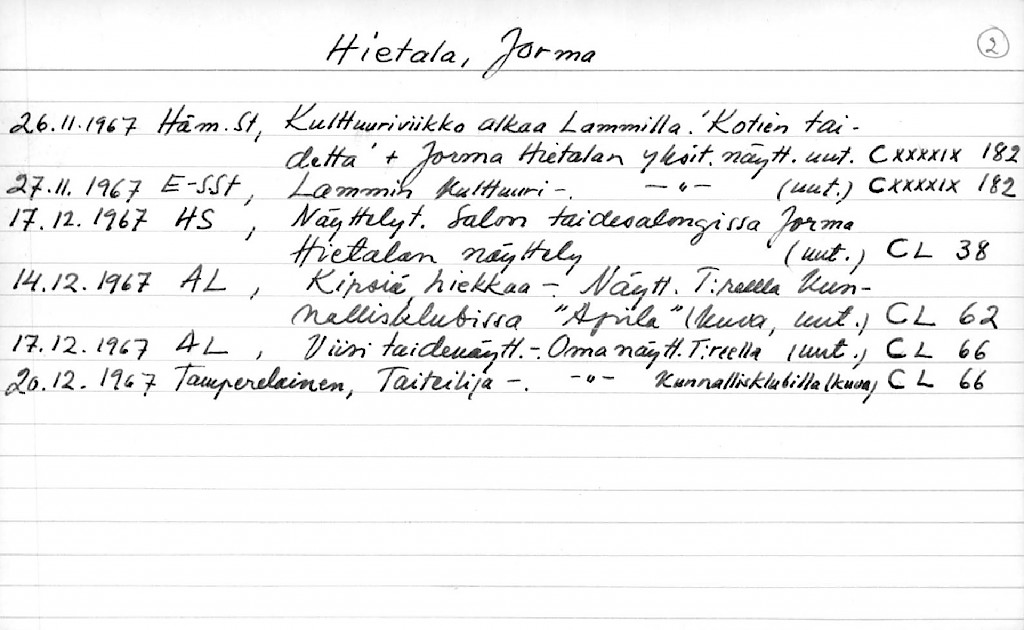 Hietala, Jorma 2
26.11.1967 Häm. St, Kulttuuriviikko alkaa Lammilla. 'Kotien tai-
detta' + Jorma Hietalan yksit. näytt. uut. CXXXXIX 182
27.11.1967 E-SSt, Lammin kulttuuri-. -"- (uut.) CXXXXIX 182
17.12.1967 HS, Näyttelyt. Salon taidesalongissa Jorma
Hietalan näyttely (uut.) CL 38
14.12.1967 AL, Kipsiä, hiekkaa -. Näytt. T:reella Kun-
nallisklubissa "Apila" (kuva, uut.) CL 62
17.12.1967 AL, Viisi taidenäytt. -. Oma näytt. T:reella (uut.) CL 66
20.12.1967 Tamperelainen, Taiteilija -. -"- Kunnallisklubilla (kuva) CL 66